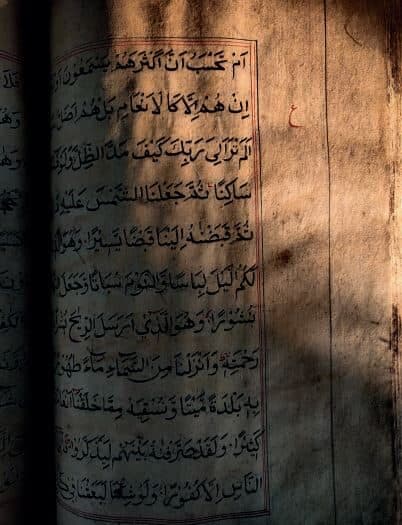 اَمْ تَحْسَبُ اَنَّ اَكْثَرَهُمْ يَسْمَعُونَ اَوْ
اِنْ هُمْ اِلَّا كَالْاَنْعَامِ بَلْ هُمْ اَضَلُّ
ع
اَلَمْ تَرَ اِلٰى رَبِّكَ كَيْفَ مَدَّ الظِّلَّ وَلَوْ
سَاكِنًا ثُمَّ جَعَلْنَا الشَّمْسَ عَلَيْهِ
ثُمَّ قَبَضْنٰهُ اِلَيْنَا قَبْضًا يَسِيْرًا وَهُوَ
لَكُمُ لَّيْلَ لِبَاسًا وَّالنَّوْمَ سُبَاتًا وَّجَعَلَ
نُشُوْرًا وَهُوَ الَّذِيْ اَرْسَلَ الرِّيٰحَ
رَحْمَتِهٖ وَاَنْزَلْنَا مِنَ السَّمَآءِ مَآءً طَهُوْ
بِهٖ بَلْدَةً مَّيْتًا وَّنُسْقِيَهٗ مِمَّا خَلَقْنَا
كَثِيْرًا وَلَقَدْ صَرَّفْنٰهُ بَيْنَهُمْ لِيَذَّكَّرُوْا
النَّاسِ اِلَّا كُفُوْرًا وَلَوْ شِئْنَا لَبَعَثْنَا فِيْ